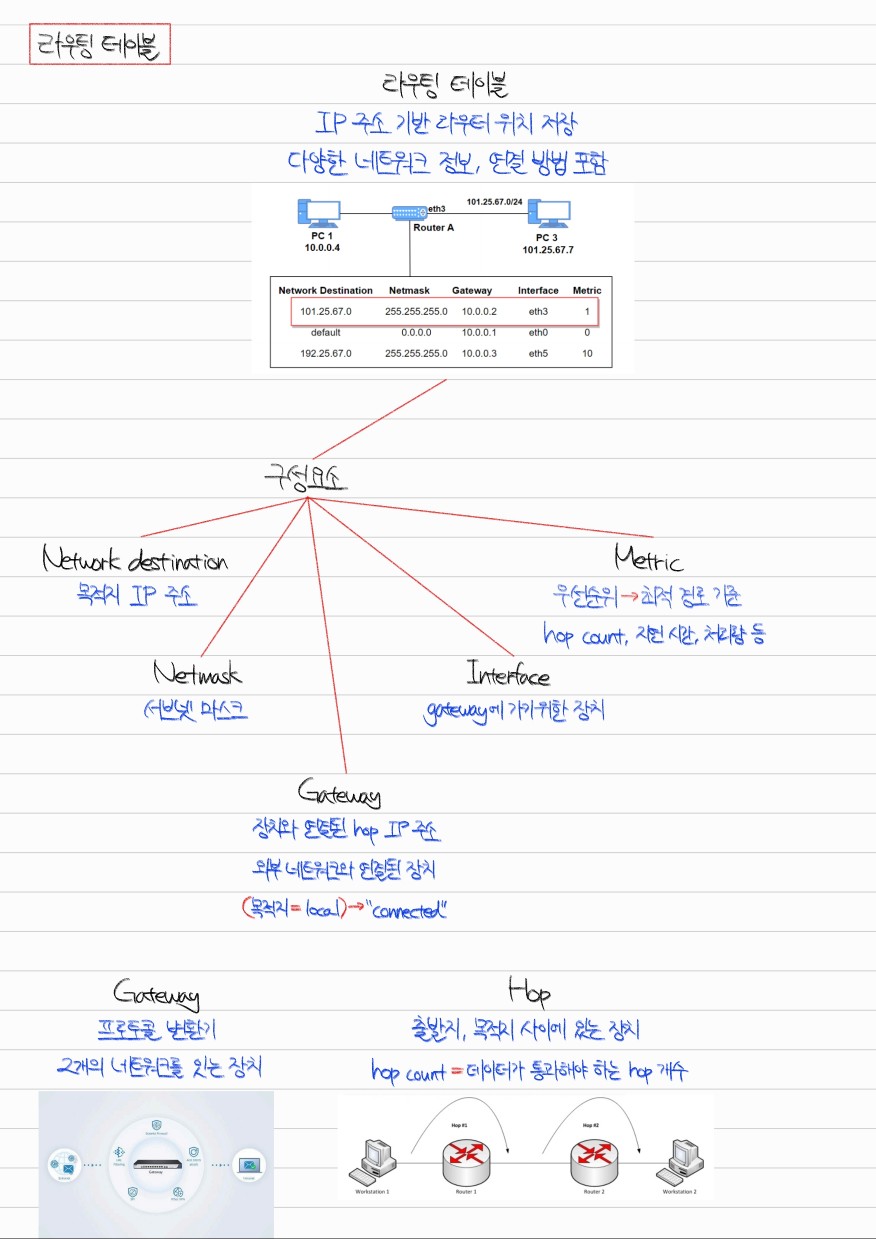 라우팅 테이블
라우팅 테이블
IP 주소 기반 라우터 위치 저장
다양한 네트워크 정보, 연결 방법 포함
101.25.67.0/24
eth3
Router A
PC 1
10.0.0.4
PC 3
101.25.67.7
Network Destination Netmask Gateway Interface Metric
101.25.67.0 255.255.255.0 10.0.0.2 eth3 1
default 0.0.0.0 10.0.0.1 eth0 0
192.25.67.0 255.255.255.0 10.0.0.3 eth5 10
구성요소
Network destination
목적지 IP 주소
Metric
우선순위→최적 경로 기준
hop count, 지연 시간, 처리량 등
Netmask
서브넷 마스크
Interface
gateway에 가기위한 장치
Gateway
장치와 연결된 hop IP 주소
외부 네트워크와 연결된 장치
(목적지=local)→"connected"
Gateway
프로토콜 변환기
2개의 네트워크를 잇는 장치
Hop
출발지, 목적지 사이에 있는 장치
hop count = 데이터가 통과해야 하는 hop 개수
Gateway
Hop #1
Hop #2
Workstation 1
Router 1
Router 2
Workstation 2